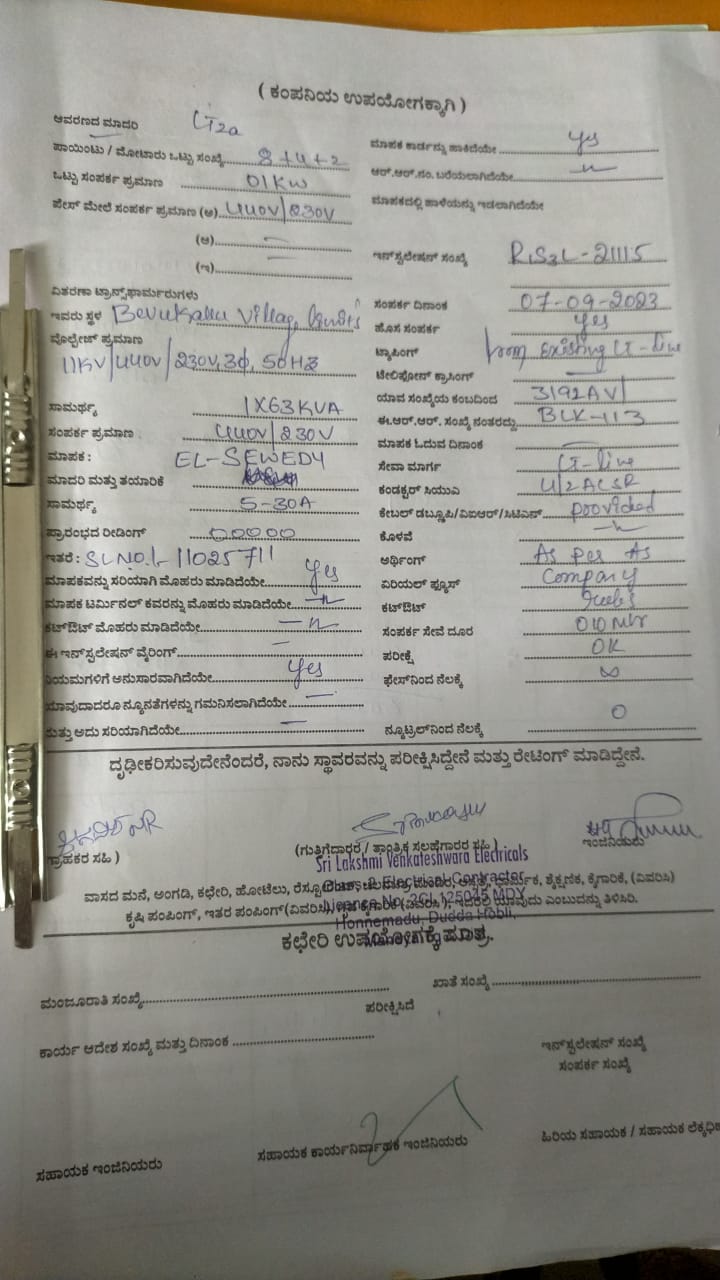 ( ಕಂಪನಿಯ ಉಪಯೋಗಕ್ಕಾಗಿ )
ಆವರಣದ ಮಾದರಿ LT2a
ಪಾಯಿಂಟು / ಮೋಟಾರು ಒಟ್ಟು ಸಂಖ್ಯೆ 8+4+2
ಒಟ್ಟು ಸಂಪರ್ಕ ಪ್ರಮಾಣ 01KW
ಪೇಸ್ ಮೇಲೆ ಸಂಪರ್ಕ ಪ್ರಮಾಣ (ಅ) 440V/230V
(ಆ)
(ಇ)
ವಿತರಣಾ ಟ್ರಾನ್ಸ್‌ಫಾರ್ಮರುಗಳು
ಇವರು ಸ್ಥಳ Bevukallu Village,
ವೊಲ್ಟೇಜ್ ಪ್ರಮಾಣ
11KV/440V/230V, 3Φ, 50HZ
ಸಾಮರ್ಥ್ಯ 1X63KVA
ಸಂಪರ್ಕ ಪ್ರಮಾಣ 440V/230V
ಮಾಪಕ : EL-SEWEDY
ಮಾದರಿ ಮತ್ತು ತಯಾರಿಕೆ
ಸಾಮರ್ಥ್ಯ 5-30A
ಪ್ರಾರಂಭದ ರೀಡಿಂಗ್ 00000
ಇತರೆ : SL NO:- 11025711
ಮಾಪಕವನ್ನು ಸರಿಯಾಗಿ ಮೊಹರು ಮಾಡಿದೆಯೇ yes
ಮಾಪಕ ಟರ್ಮಿನಲ್ ಕವರನ್ನು ಮೊಹರು ಮಾಡಿದೆಯೇ -"-
ಕಟ್‌ಔಟ್ ಮೊಹರು ಮಾಡಿದೆಯೇ -"-
ಈ ಇನ್‌ಸ್ಟಲೇಷನ್ ವೈರಿಂಗ್
ನಿಯಮಗಳಿಗೆ ಅನುಸಾರವಾಗಿದೆಯೇ yes
ಯಾವುದಾದರೂ ನ್ಯೂನತೆಗಳನ್ನು ಗಮನಿಸಲಾಗಿದೆಯೇ
ಮತ್ತು ಅದು ಸರಿಯಾಗಿದೆಯೇ
ಮಾಪಕ ಕಾರ್ಡನ್ನು ಹಾಕಿದೆಯೇ yes
ಆರ್.ಆರ್.ನಂ. ಬರೆಯಲಾಗಿದೆಯೇ -"-
ಮಾಪಕದಲ್ಲಿ ಹಾಳೆಯನ್ನು ಇಡಲಾಗಿದೆಯೇ
ಇನ್‌ಸ್ಟಲೇಷನ್ ಸಂಖ್ಯೆ RIS3L-21115
ಸಂಪರ್ಕ ದಿನಾಂಕ 07-09-2023
ಹೊಸ ಸಂಪರ್ಕ yes
ಟ್ಯಾಪಿಂಗ್ from existing LT-line
ಟೆಲಿಫೋನ್ ಕ್ರಾಸಿಂಗ್
ಯಾವ ಸಂಖ್ಯೆಯ ಕಂಬದಿಂದ 3192AV/
ಈ.ಆರ್.ಆರ್. ಸಂಖ್ಯೆ ನಂತರದ್ದು BLK-113
ಮಾಪಕ ಓದುವ ದಿನಾಂಕ
ಸೇವಾ ಮಾರ್ಗ LT-line
ಕಂಡಕ್ಟರ್ ಸಿಯುಎ 4/2 ACSR
ಕೇಬಲ್ ಡಬ್ಲ್ಯೂಪಿ/ವಿಐಆರ್/ಸಿಟಿಎಸ್ provided
ಕೊಳವೆ -"-
ಅರ್ಥಿಂಗ್ As per As
ಏರಿಯಲ್ ಫ್ಯೂಸ್ Company
ಕಟ್‌ಔಟ್ Rules
ಸಂಪರ್ಕ ಸೇವೆ ದೂರ 010 Mtr
ಪರೀಕ್ಷೆ OK
ಫೇಸ್‌ನಿಂದ ನೆಲಕ್ಕೆ ∞
ನ್ಯೂಟ್ರಲ್‌ನಿಂದ ನೆಲಕ್ಕೆ 0
ದೃಢೀಕರಿಸುವುದೇನೆಂದರೆ, ನಾನು ಸ್ಥಾವರವನ್ನು ಪರೀಕ್ಷಿಸಿದ್ದೇನೆ ಮತ್ತು ರೇಟಿಂಗ್ ಮಾಡಿದ್ದೇನೆ.
ಗ್ರಾಹಕರ ಸಹಿ )
(ಗುತ್ತಿಗೆದಾರರ / ತಾಂತ್ರಿಕ ಸಲಹೆಗಾರರ ಸಹಿ )
ಇಂಜಿನಿಯರು
Sri Lakshmi Venkateshwara Electricals
Electrical Contractor
125035 MDY
Honnemadu, Dudda Hobli,
ವಾಸದ ಮನೆ, ಅಂಗಡಿ, ಕಛೇರಿ, ಹೋಟೆಲು, ಧಾರ್ಮಿಕ, ಶೈಕ್ಷಣಿಕ, ಕೈಗಾರಿಕೆ, (ವಿವರಿಸಿ)
ಕೃಷಿ ಪಂಪಿಂಗ್, ಇತರ ಪಂಪಿಂಗ್(ವಿವರಿಸಿ) ಯಾವುದು ಎಂಬುದನ್ನು ತಿಳಿಸಿರಿ.
ಕಛೇರಿ ಉಪಯೋಗಕ್ಕೆ ಮಾತ್ರ.
ಮಂಜೂರಾತಿ ಸಂಖ್ಯೆ
ಖಾತೆ ಸಂಖ್ಯೆ
ಪರೀಕ್ಷಿಸಿದೆ
ಕಾರ್ಯ ಆದೇಶ ಸಂಖ್ಯೆ ಮತ್ತು ದಿನಾಂಕ
ಇನ್‌ಸ್ಟಲೇಷನ್ ಸಂಖ್ಯೆ
ಸಂಪರ್ಕ ಸಂಖ್ಯೆ
ಸಹಾಯಕ ಇಂಜಿನಿಯರು
ಸಹಾಯಕ ಕಾರ್ಯನಿರ್ವಾಹಕ ಇಂಜಿನಿಯರು
ಹಿರಿಯ ಸಹಾಯಕ / ಸಹಾಯಕ